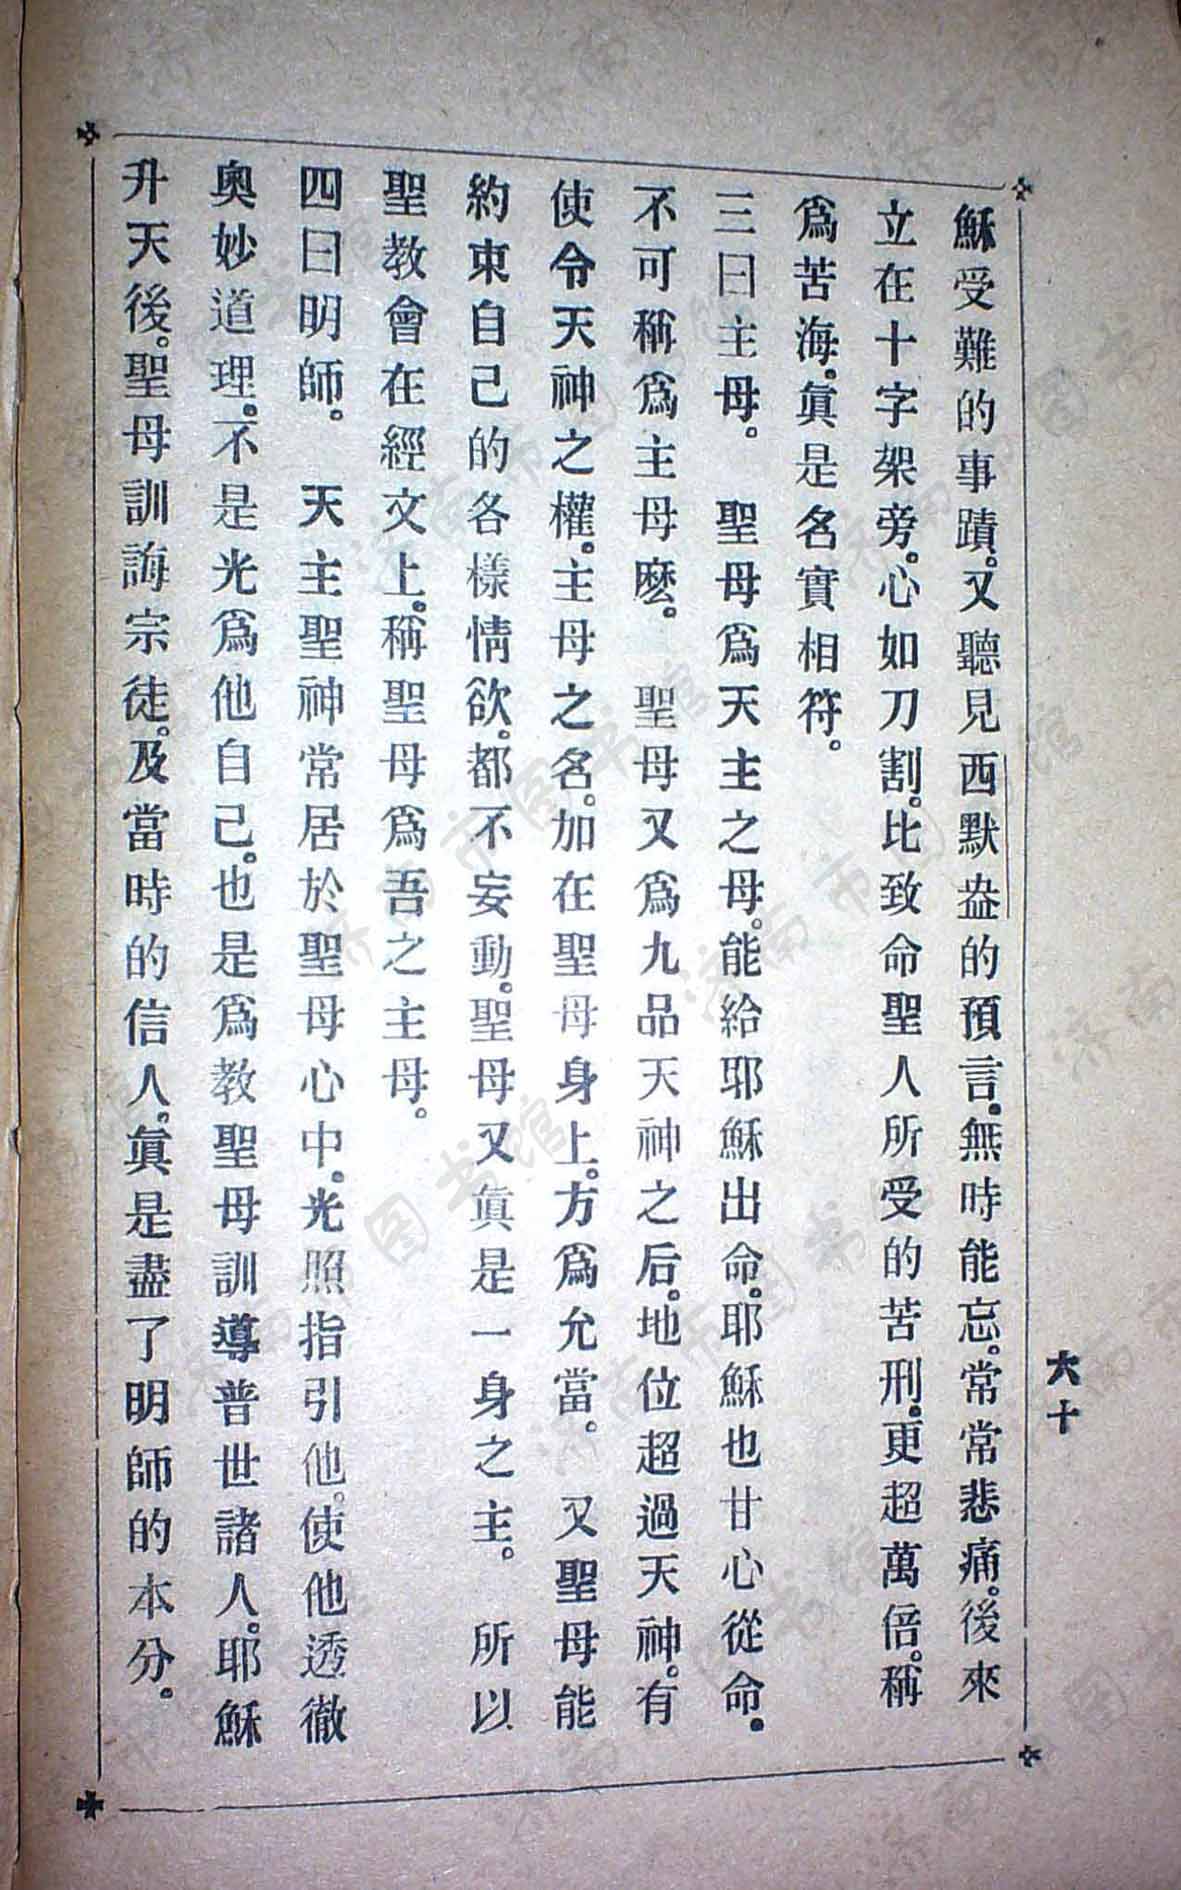 六十
穌受難的事蹟。又聽見西默盎的預言。無時能忘。常常悲痛。後來
立在十字架旁。心如刀割。比致命聖人所受的苦刑。更超萬倍。稱
爲苦海。眞是名實相符。
三曰主母。　聖母爲天主之母。能給耶穌出命。耶穌也甘心從命。
不可稱爲主母麽。　聖母又爲九品天神之后。地位超過天神。有
使令天神之權。主母之名。加在聖母身上。方爲允當。　又聖母能
約束自己的各樣情欲。都不妄動。聖母又眞是一身之主。　所以
聖教會在經文上。稱聖母爲吾之主母。
四曰明師。　天主聖神常居於聖母心中。光照指引他。使他透徹
奧妙道理。不是光爲他自己。也是爲教聖母訓導普世諸人。耶穌
升天後。聖母訓誨宗徒。及當時的信人。眞是盡了明師的本分。
济南市图书馆